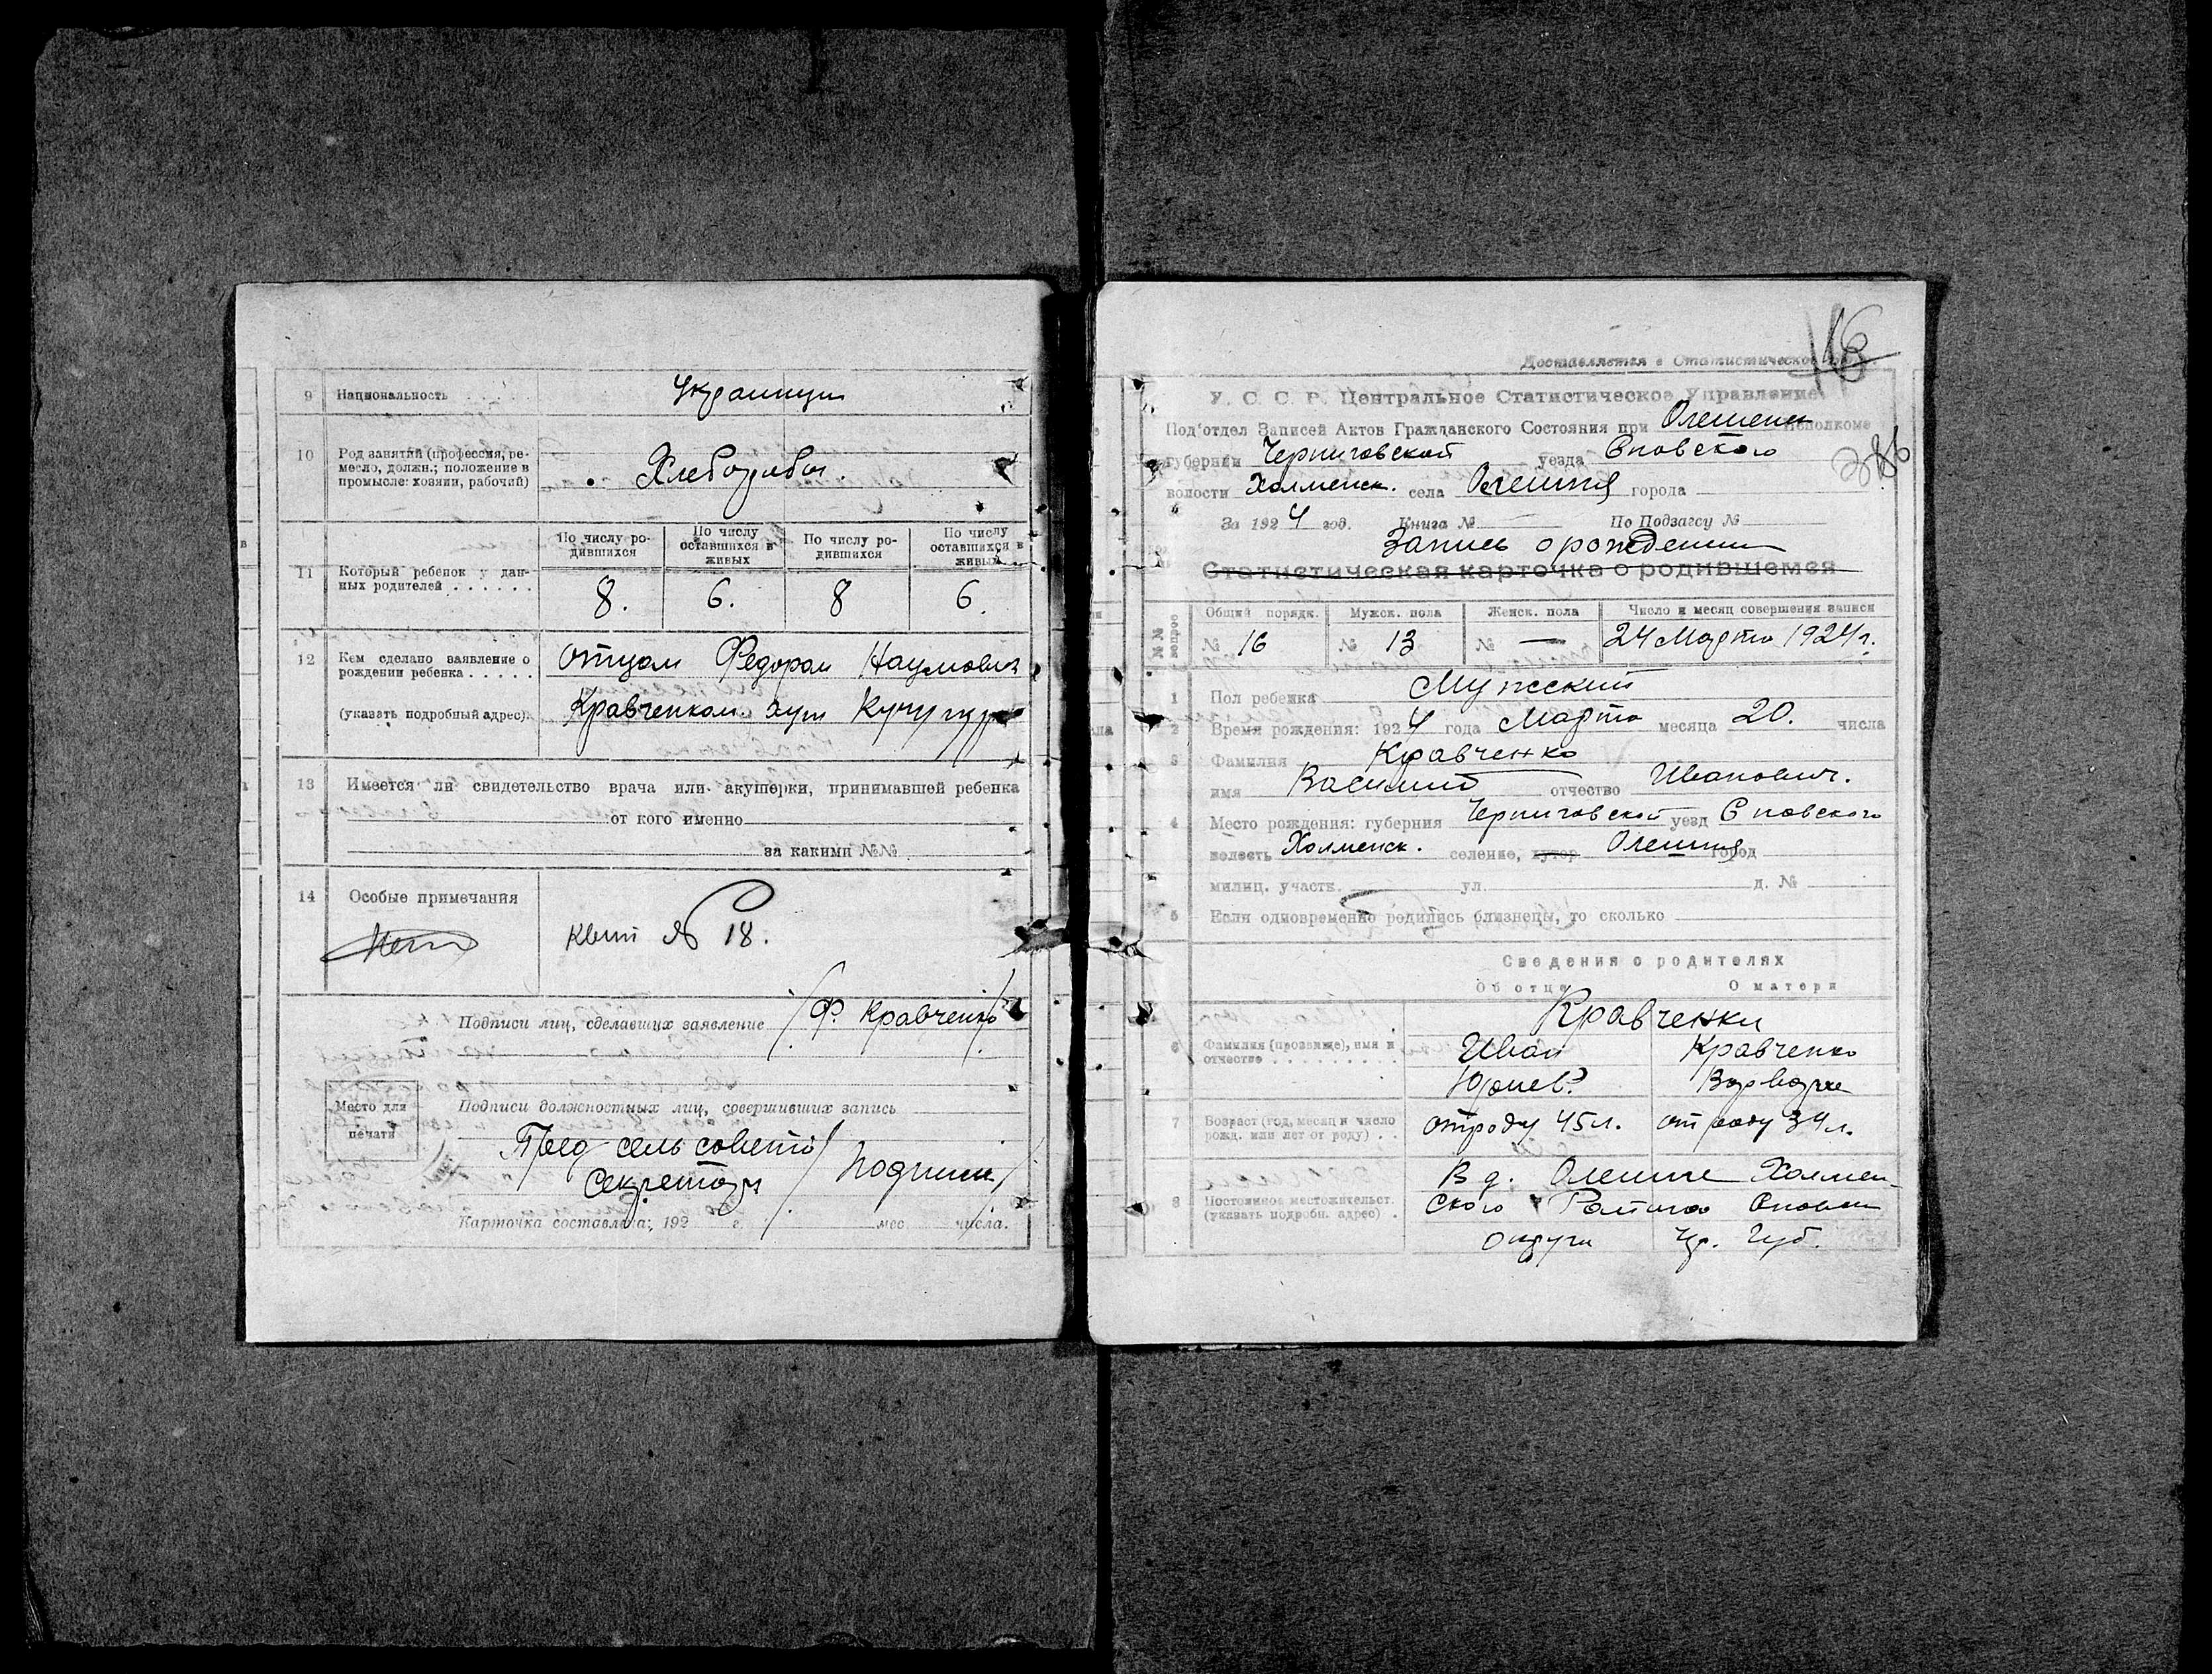 9 Национальность
Украинцы
10 Род занятий (профессия, ре-
месло, должн.; положение в
промысле: хозяин, рабочий)
Хлеборобы
По числу ро-
дившихся
По числу
оставшихся в
живых
По числу ро-
дившихся
По числу
оставшихся в
живых
11 Который ребенок у дан-
ных родителей
8. 6. 8 6.
12 Кем сделано заявление о
рождении ребенка
(указать подробный адрес).
отцом Федором Наумович
Кравченком. хут Кучугуры
13 Имеется ли свидетельство врача или акушерки, принимавшей ребенка
от кого именно
за какими №№
14 Особые примечания
Нет
Квит № 18.
Подписи лиц, сделавших заявление /Ф. Кравченко/
Место для
печати
Подписи должностных лиц, совершивших запись
Пред сельсовета/
Секретарь / Подписи/
Карточка составлена; 192 г. мес числа.
16
Доставляется в Статистическое
У. С. С. Р. Центральное Статистическое Управление
Под'отдел Записей Актов Гражданского Состояния при Олешенск Исполкоме
386
губернии Черниговской уезда Сновского
волости Холменск. села Олешня города
За 1924 год. Книга № По Подзагсу №
Запись о рождении
Статистическая карточка о родившемся
№№ вопрос
Общий порядк. Мужск. пола Женск. пола Число и месяц совершения записи
№ 16 № 13 № — 24 Марта 1924 г.
1 Пол ребенка Мужеский
2 Время рождения: 1924 года Марта месяца 20. числа
3 Фамилия Кравченко
имя Василий отчество Иванович.
4 Место рождения: губерния Черниговской уезд Сновского
волость Холменск. селение, хутор Олешня город
милиц. участк. ул. д. №
5 Если одновременно родились близнецы, то сколько
Сведения о родителях
Об отце О матери
Кравченки
6 Фамилия (прозвище), имя и
отчество
Иван Кравченко
7 Возраст (год, месяц и число
рожд. или лет от роду)
от роду 45 л. от роду 34 л.
8 Постоянное местожительст.
(указать подробн. адрес)
В д. Олешне Холмен-
ского Сновск
округи Чр. Губ.